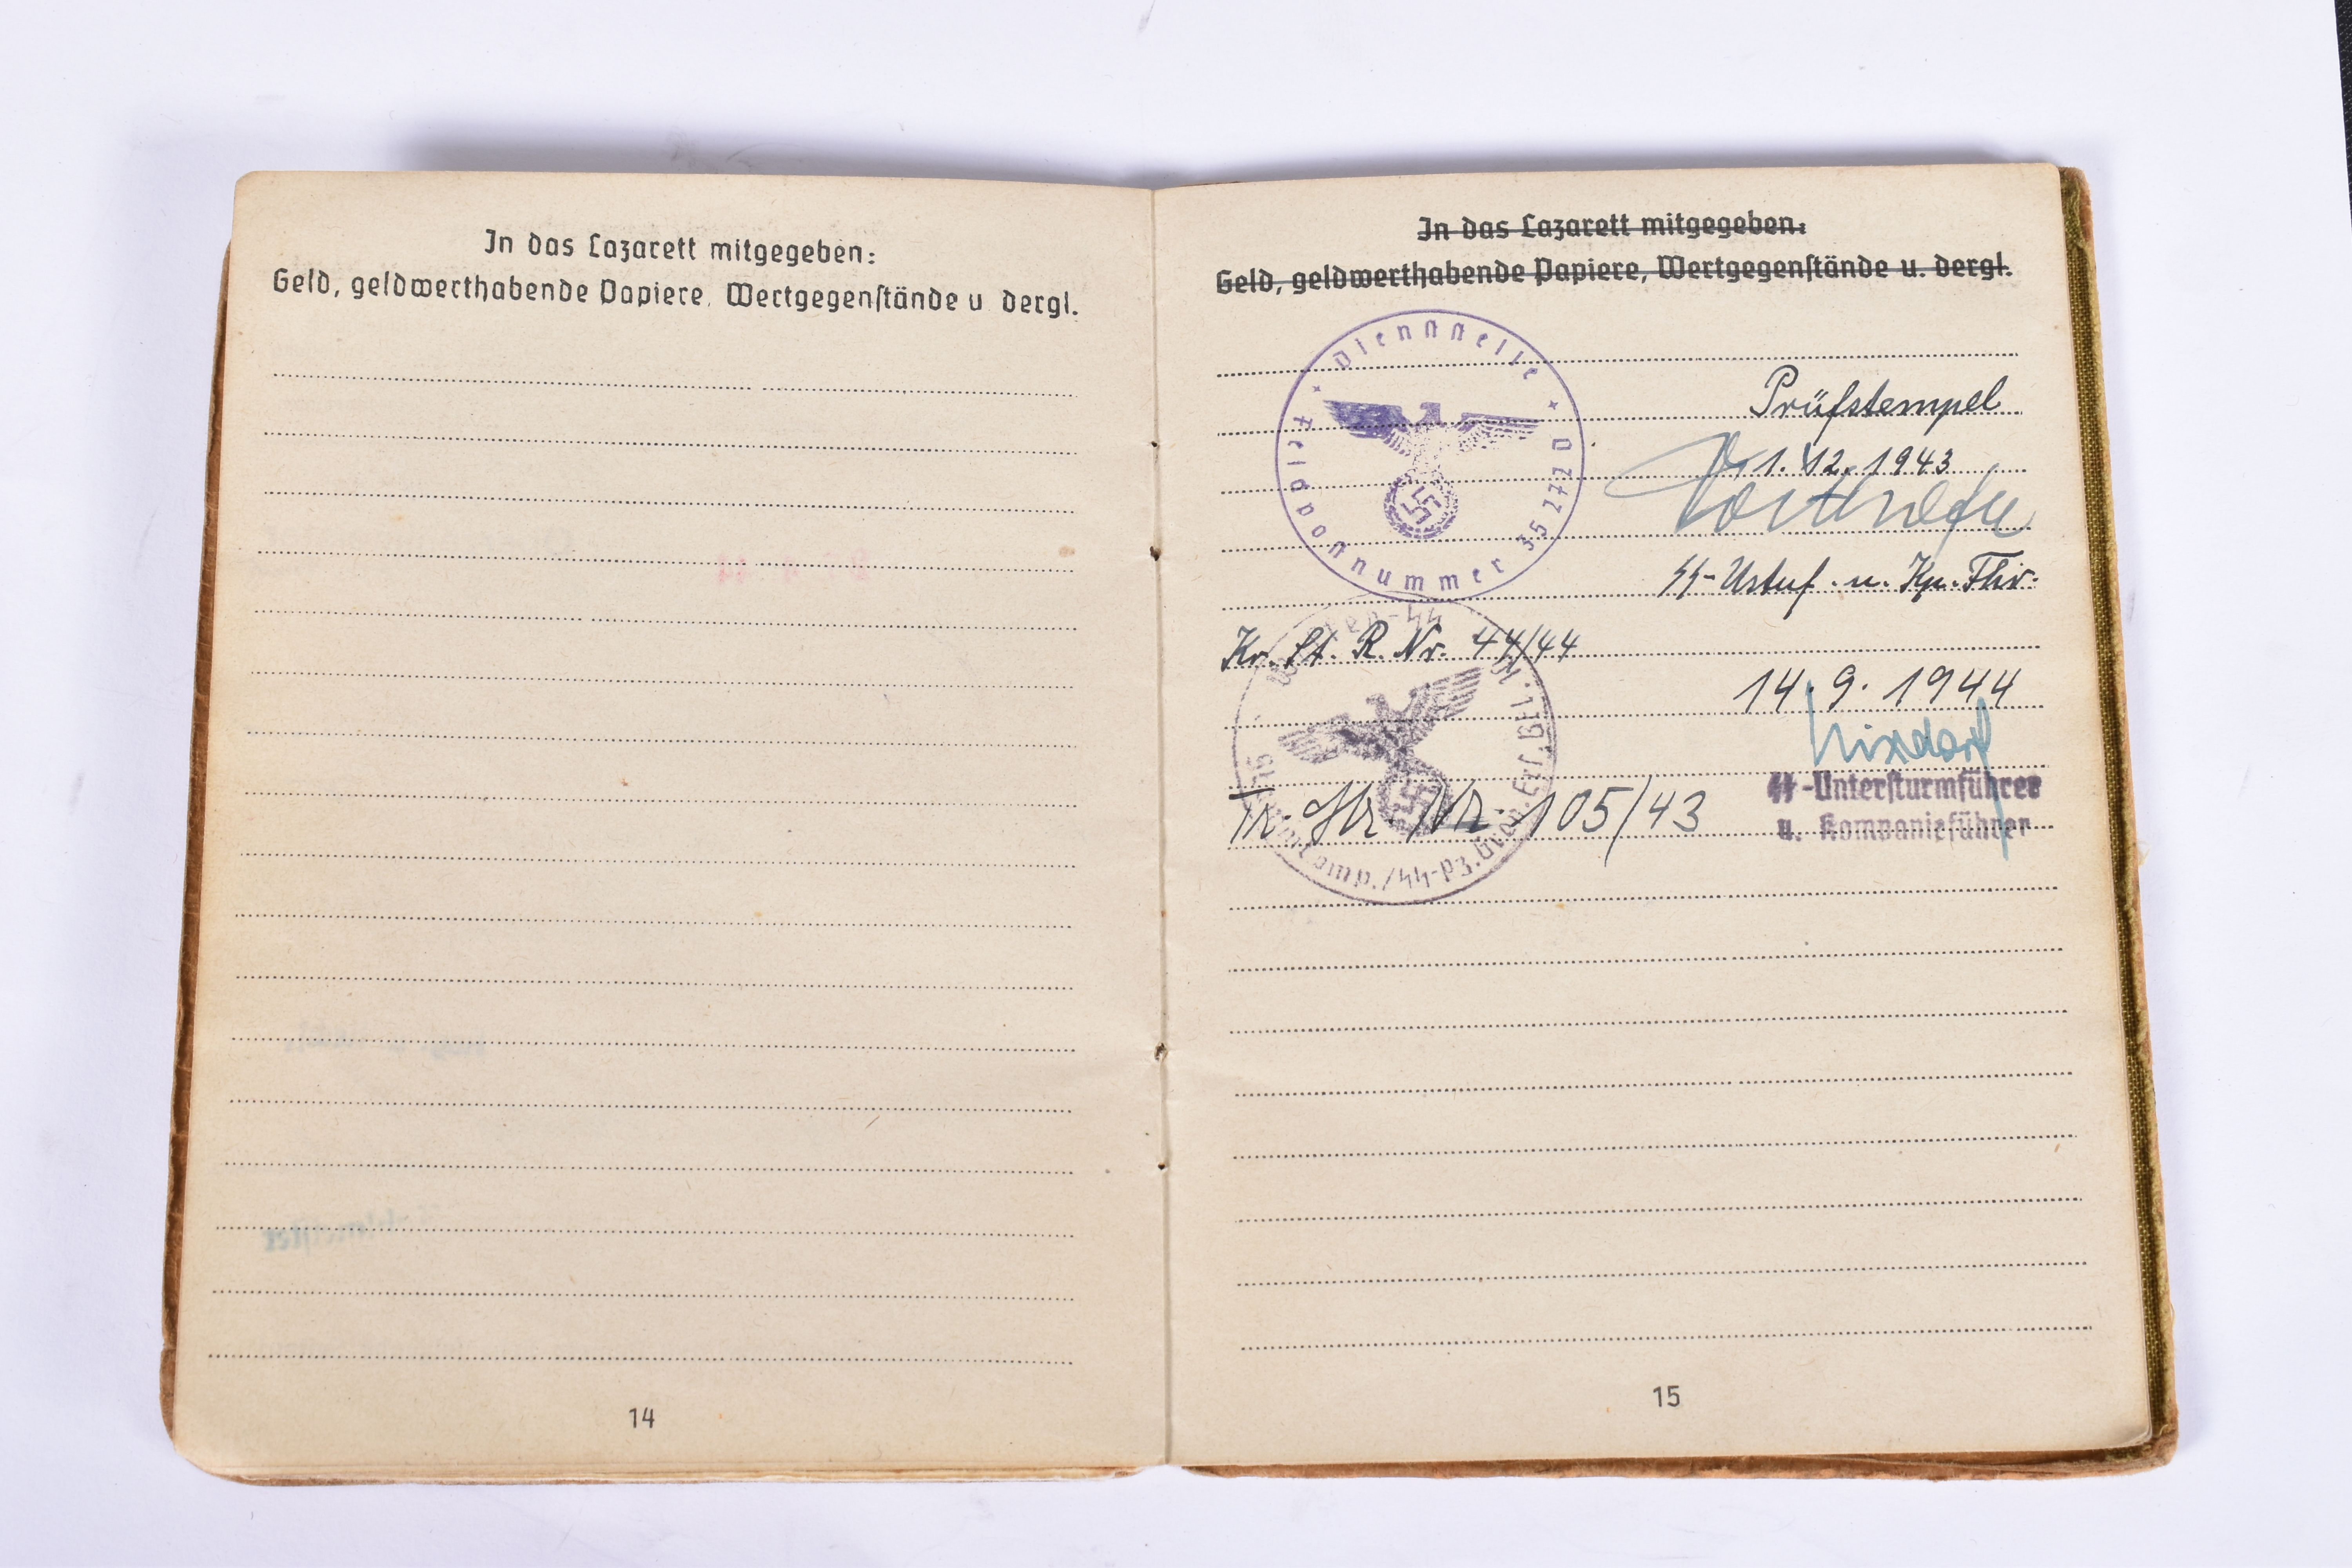 In das Lazarett mitgegeben:
Geld, geldwerthabende Papiere, Wertgegenstände u dergl.
14
In das Lazarett mitgegeben:
Geld, geldwerthabende Papiere, Wertgegenstände u. dergl.
Dienststelle
Feldpostnummer 35 272 D
Prüfstempel
1.12.1943
SS-Ustuf. u. Kp. Fhr.
Kr. St. R. Nr. 44/44
14.9.1944
Nixdorf
SS-Untersturmführer
u. Kompanieführer
Tr. Nr. 105/43
Waffen-SS
komp./SS-Pz. Gren. Ers. Btl.
15